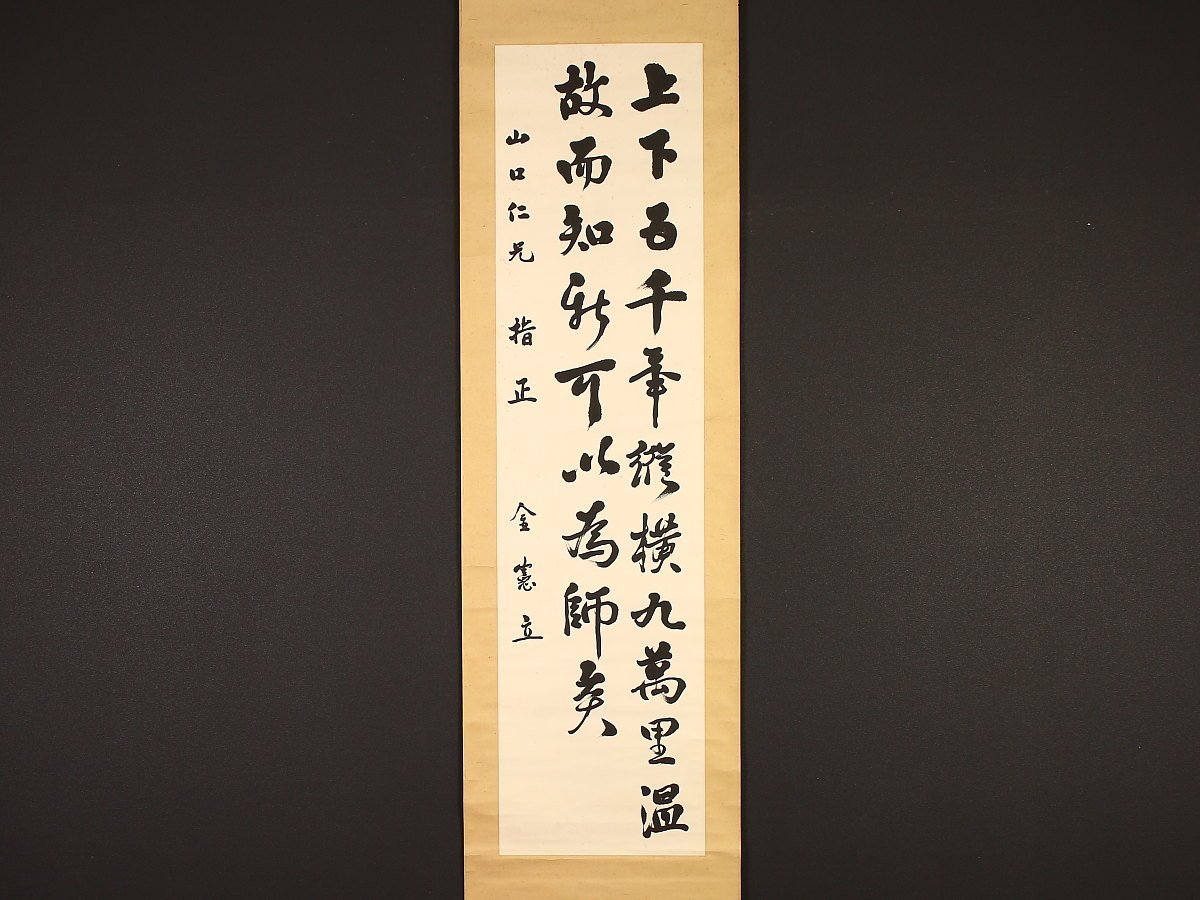 上下百千年縱橫九萬里温
故而知新可以為師矣
山口仁兄 指正 金憲立